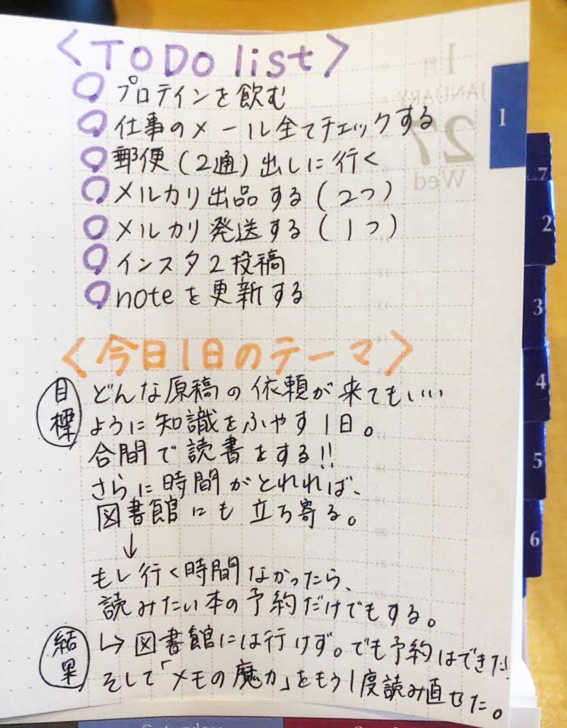 ＜ToDo list＞
プロテインを飲む
仕事のメール全てチェックする
郵便(2通)出しに行く
メルカリ出品する(2つ)
メルカリ発送する(1つ)
インスタ2投稿
noteを更新する
＜今日1日のテーマ＞
目標 どんな原稿の依頼が来てもいい
ように知識をふやす1日。
合間で読書をする!!
さらに時間がとれれば、
図書館にも立ち寄る。
↓
もし行く時間なかったら、
読みたい本の予約だけでもする。
結果 ↳図書館には行けず。でも予約はできた!
そして「メモの魔力」をもう1度読み直せた。
1月
JANUARY
27
Wed
1
7
2
3
4
5
6
Saturday